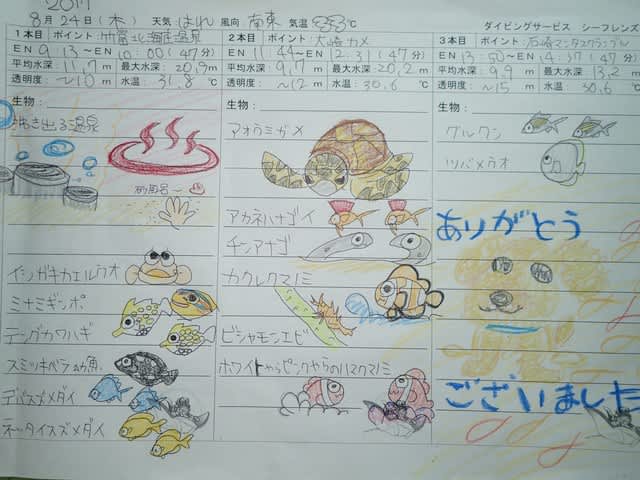 2017
8月24日(木) 天気 はれ 風向 南東 気温 33℃ ダイビングサービス シーフレンズ
1本目 ポイント 竹富北海底温泉
EN 9:13〜10:00(47分)
平均水深: 11.7m 最大水深: 20.9m
透明度: 〜10m 水温: 31.8℃
生物:
沸き出る温泉
砂風呂〜
イシガキカエルウオ
ミナミギンポ
テングカワハギ
スミツキベラ幼魚
デバスズメダイ
ネッタイスズメダイ
2本目 ポイント 大崎カメ
EN 11:44〜12:31(47分)
平均水深: 9.7m 最大水深: 20.2m
透明度: 〜12m 水温: 30.6℃
生物:
アオウミガメ
アカネハナゴイ
チンアナゴ
カクレクマノミ
ビシャモンエビ
ホワイトからピンクやらのハマクマノミ
3本目 ポイント 石崎マンタスクランブル
EN 13:50〜14:37(47分)
平均水深: 9.9m 最大水深: 13.2m
透明度: 〜15m 水温: 30.6
生物:
グルクン
ツバメウオ
ありがとう
ございました